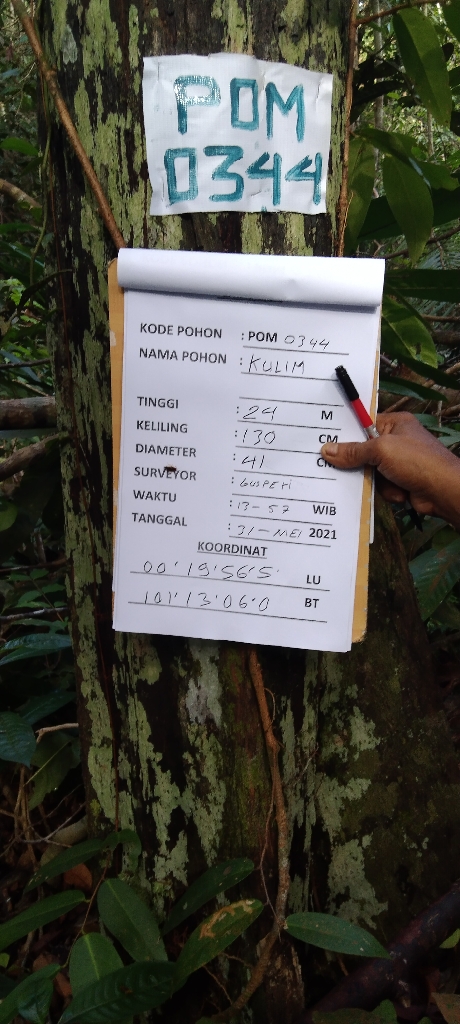 POM
0344
KODE POHON : POM 0344
NAMA POHON : KULIM
TINGGI : 24 M
KELILING : 130 CM
DIAMETER : 41 CM
SURVEYOR : GUSPETI
WAKTU : 13-57 WIB
TANGGAL : 31-MEI 2021
KOORDINAT
00'19'56'5 LU
101'13'06'0 BT